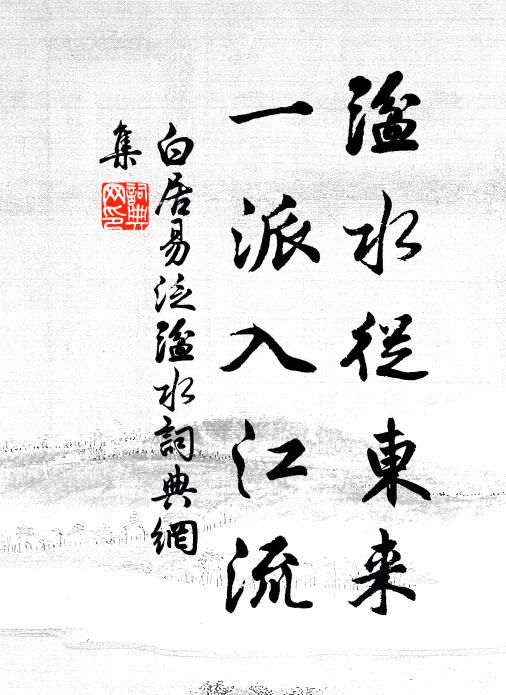 湓水從東来
一派入江流
白居易泛湓水詞典網
集
詞典网印